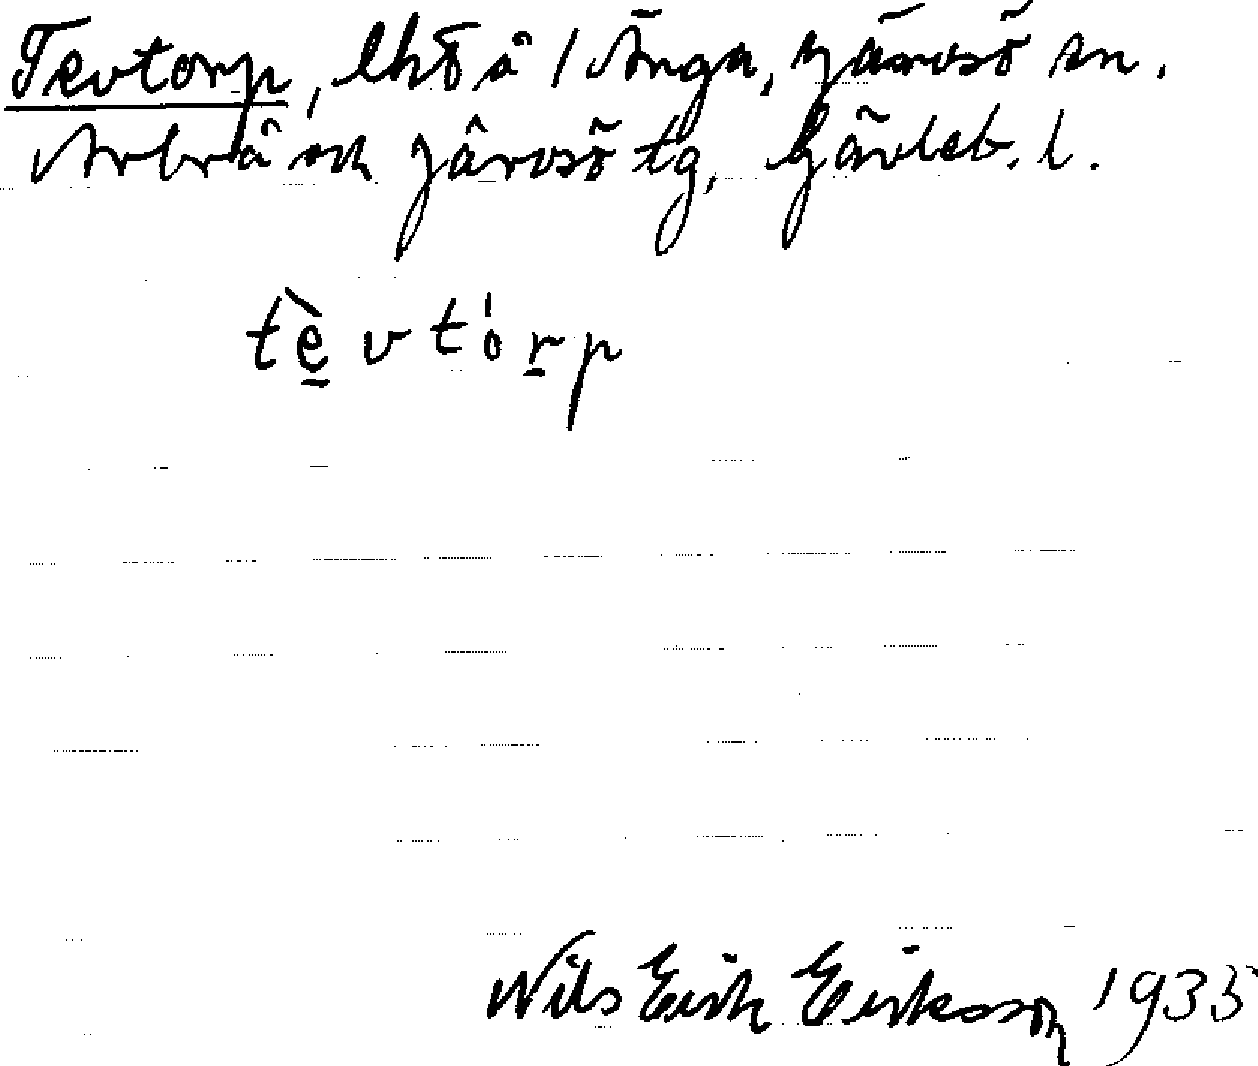 Tevtorp, lhö å 1 Änga, Järvsö sn.
Arbrå och Järvsö tg, Gävleb. l.
tè̱vtórp
Nils Erik Eriksson 1935